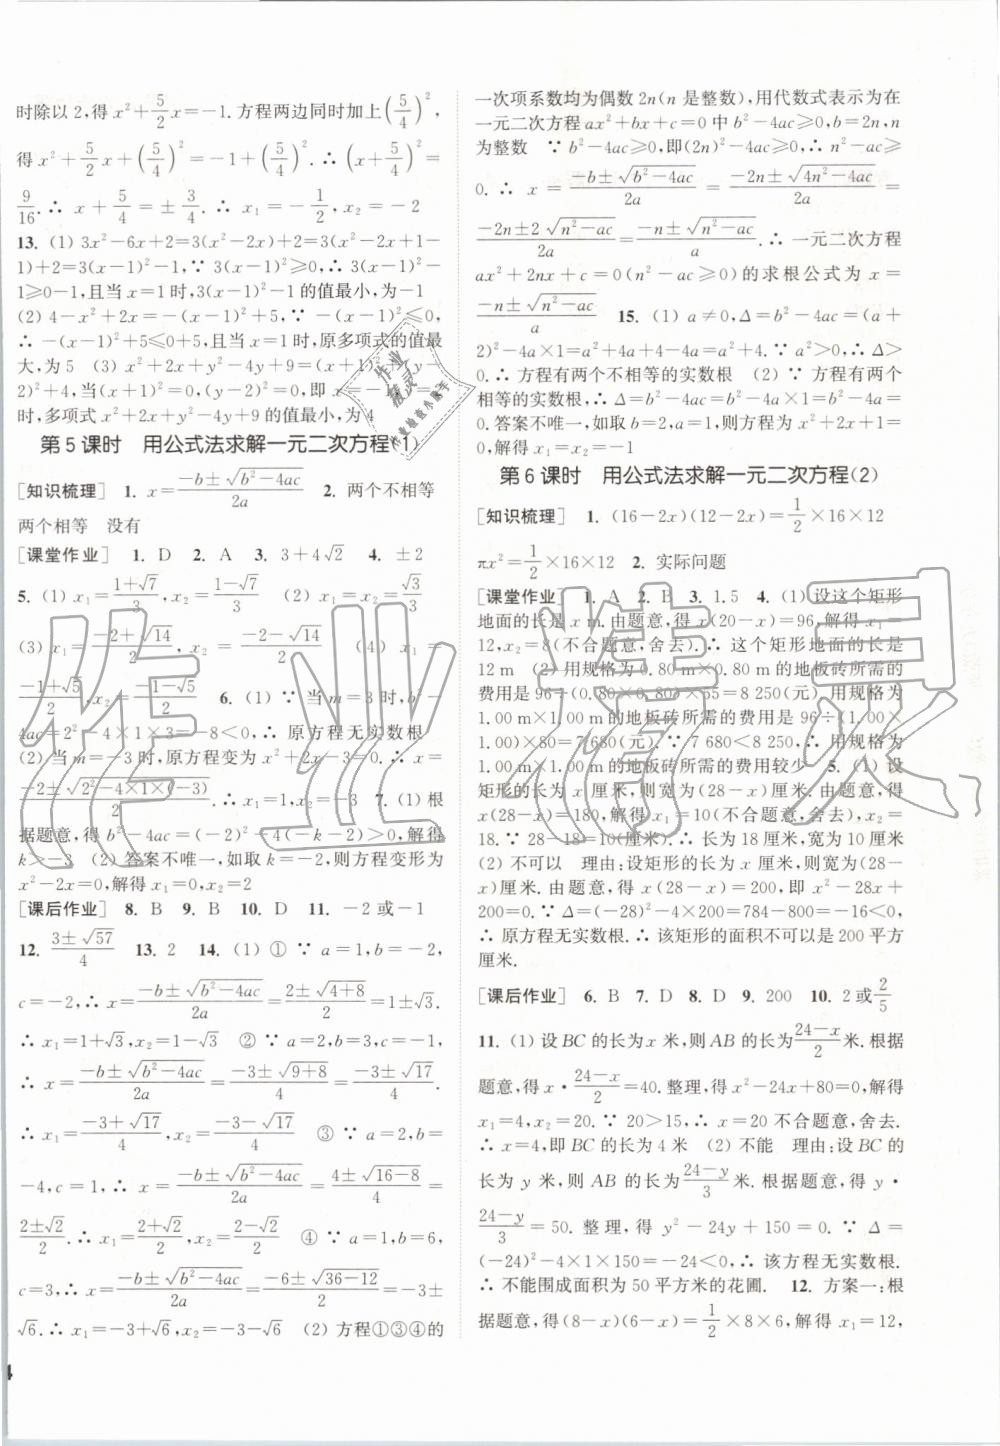 时除以 2,得 x²+5/2x=-1. 方程两边同时加上(5/4)²,
得 x²+5/2x+(5/4)²=-1+(5/4)². ∴ (x+5/4)²=
9/16. ∴ x+5/4=±3/4. ∴ x₁=-1/2, x₂=-2
13. (1) 3x²-6x+2=3(x²-2x)+2=3(x²-2x+1-
1)+2=3(x-1)²-1, ∵ 3(x-1)²≥0, ∴ 3(x-1)²-
1≥0-1, 且当 x=1 时, 3(x-1)²-1 的值最小, 为-1
(2) 4-x²+2x=-(x-1)²+5, ∵ -(x-1)²≤0,
∴ -(x-1)²+5≤0+5, 且当 x=1时, 原多项式的值最
大, 为 5 (3) x²+2x+y²-4y+9=(x+1)²+(y-
2)²+4, 当(x+1)²=0, (y-2)²=0, 即 x=-1, y=2
时, 多项式 x²+2x+y²-4y+9 的值最小, 为 4
第 5 课时 用公式法求解一元二次方程(1)
[知识梳理] 1. x=(-b±√(b²-4ac))/2a 2. 两个不相等
两个相等 没有
[课堂作业] 1. D 2. A 3. 3+4√2 4. ±2
5. (1) x₁=(1+√7)/3, x₂=(1-√7)/3 (2) x₁=x₂=√3/3
(3) x₁=(-2+√14)/2, x₂=(-2-√14)/2 (4) x₁=
(-1+√5)/2, x₂=(-1-√5)/2 6. (1) ∵ 当 m=3 时, b²-
4ac=2²-4×1×3=-8<0, ∴ 原方程无实数根
(2) 当 m=-3 时, 原方程变为 x²+2x-3=0. ∴ x=
(-2±√(2²-4×1×(-3)))/2. ∴ x₁=1, x₂=-3 7. (1) 根
据题意, 得 b²-4ac=(-2)²-4(-k-2)>0, 解得
k>-3 (2) 答案不唯一, 如取 k=-2, 则方程变形为
x²-2x=0, 解得 x₁=0, x₂=2
[课后作业] 8. B 9. B 10. D 11. -2或-1
12. (3±√57)/4 13. 2 14. (1) ① ∵ a=1, b=-2,
c=-2, ∴ x=(-b±√(b²-4ac))/2a=(2±√(4+8))/2=1±√3.
∴ x₁=1+√3, x₂=1-√3 ② ∵ a=2, b=3, c=-1,
∴ x=(-b±√(b²-4ac))/2a=(-3±√(9+8))/4=(-3±√17)/4.
∴ x₁=(-3+√17)/4, x₂=(-3-√17)/4 ③ ∵ a=2, b=
-4, c=1, ∴ x=(-b±√(b²-4ac))/2a=(4±√(16-8))/4=
(2±√2)/2. ∴ x₁=(2+√2)/2, x₂=(2-√2)/2 ④ ∵ a=1, b=6,
c=3, ∴ x=(-b±√(b²-4ac))/2a=(-6±√(36-12))/2=-3±
√6. ∴ x₁=-3+√6, x₂=-3-√6 (2) 方程①③④的
4
一次项系数均为偶数 2n(n 是整数), 用代数式表示为在
一元二次方程 ax²+bx+c=0 中 b²-4ac≥0, b=2n, n
为整数 ∵ b²-4ac≥0, 即(2n)²-4ac≥0, ∴ n²-ac≥
0. ∴ x=(-b±√(b²-4ac))/2a=(-2n±√(4n²-4ac))/2a=
(-2n±2√(n²-ac))/2a=(-n±√(n²-ac))/a. ∴ 一元二次方程
ax²+2nx+c=0(n²-ac≥0)的求根公式为 x=
(-n±√(n²-ac))/a 15. (1) a≠0, Δ=b²-4ac=(a+
2)²-4a×1=a²+4a+4-4a=a²+4. ∵ a²>0, ∴ Δ>
0. ∴ 方程有两个不相等的实数根 (2) ∵ 方程有两个
相等的实数根, ∴ Δ=b²-4ac=b²-4a×1=b²-4a=
0. 答案不唯一, 如取 b=2, a=1, 则原方程为 x²+2x+1=
0, 解得 x₁=x₂=-1
第 6 课时 用公式法求解一元二次方程(2)
[知识梳理] 1. (16-2x)(12-2x)=1/2×16×12
πx²=1/2×16×12 2. 实际问题
[课堂作业] 1. A 2. B 3. 1.5 4. (1) 设这个矩形
地面的长是 x m. 由题意, 得 x(20-x)=96, 解得 x₁=
12, x₂=8(不合题意, 舍去). ∴ 这个矩形地面的长是
12 m (2) 用规格为 0.80 m×0.80 m的地板砖所需的
费用是 96÷(0.80×0.80)×55=8 250(元). 用规格为
1.00 m×1.00 m的地板砖所需的费用是 96÷(1.00×
1.00)×80=7 680(元). ∵ 7 680<8 250, ∴ 用规格为
1.00 m×1.00 m的地板砖所需的费用较少 5. (1) 设
矩形的长为 x 厘米, 则宽为(28-x)厘米. 由题意, 得
x(28-x)=180, 解得 x₁=10(不合题意, 舍去), x₂=
18. ∵ 28-18=10(厘米), ∴ 长为 18厘米, 宽为 10厘米
(2) 不可以 理由: 设矩形的长为 x 厘米, 则宽为(28-
x)厘米. 由题意, 得 x(28-x)=200, 即 x²-28x+
200=0. ∵ Δ=(-28)²-4×200=784-800=-16<0,
∴ 原方程无实数根. ∴ 该矩形的面积不可以是 200 平方
厘米.
[课后作业] 6. B 7. D 8. D 9. 200 10. 2或2/5
11. (1) 设 BC 的长为 x 米, 则 AB 的长为(24-x)/2米. 根据
题意, 得 x·(24-x)/2=40. 整理, 得 x²-24x+80=0, 解得
x₁=4, x₂=20. ∵ 20>15, ∴ x=20 不合题意, 舍去.
∴ x=4, 即 BC 的长为 4 米 (2) 不能 理由: 设 BC 的
长为 y 米, 则 AB 的长为(24-y)/3米. 根据题意, 得 y·
(24-y)/3=50. 整理, 得 y²-24y+150=0. ∵ Δ=
(-24)²-4×1×150=-24<0, ∴ 该方程无实数根.
∴ 不能围成面积为 50 平方米的花圃. 12. 方案一: 根
据题意, 得(8-x)(6-x)=1/2×8×6, 解得 x₁=12,
作业精灵